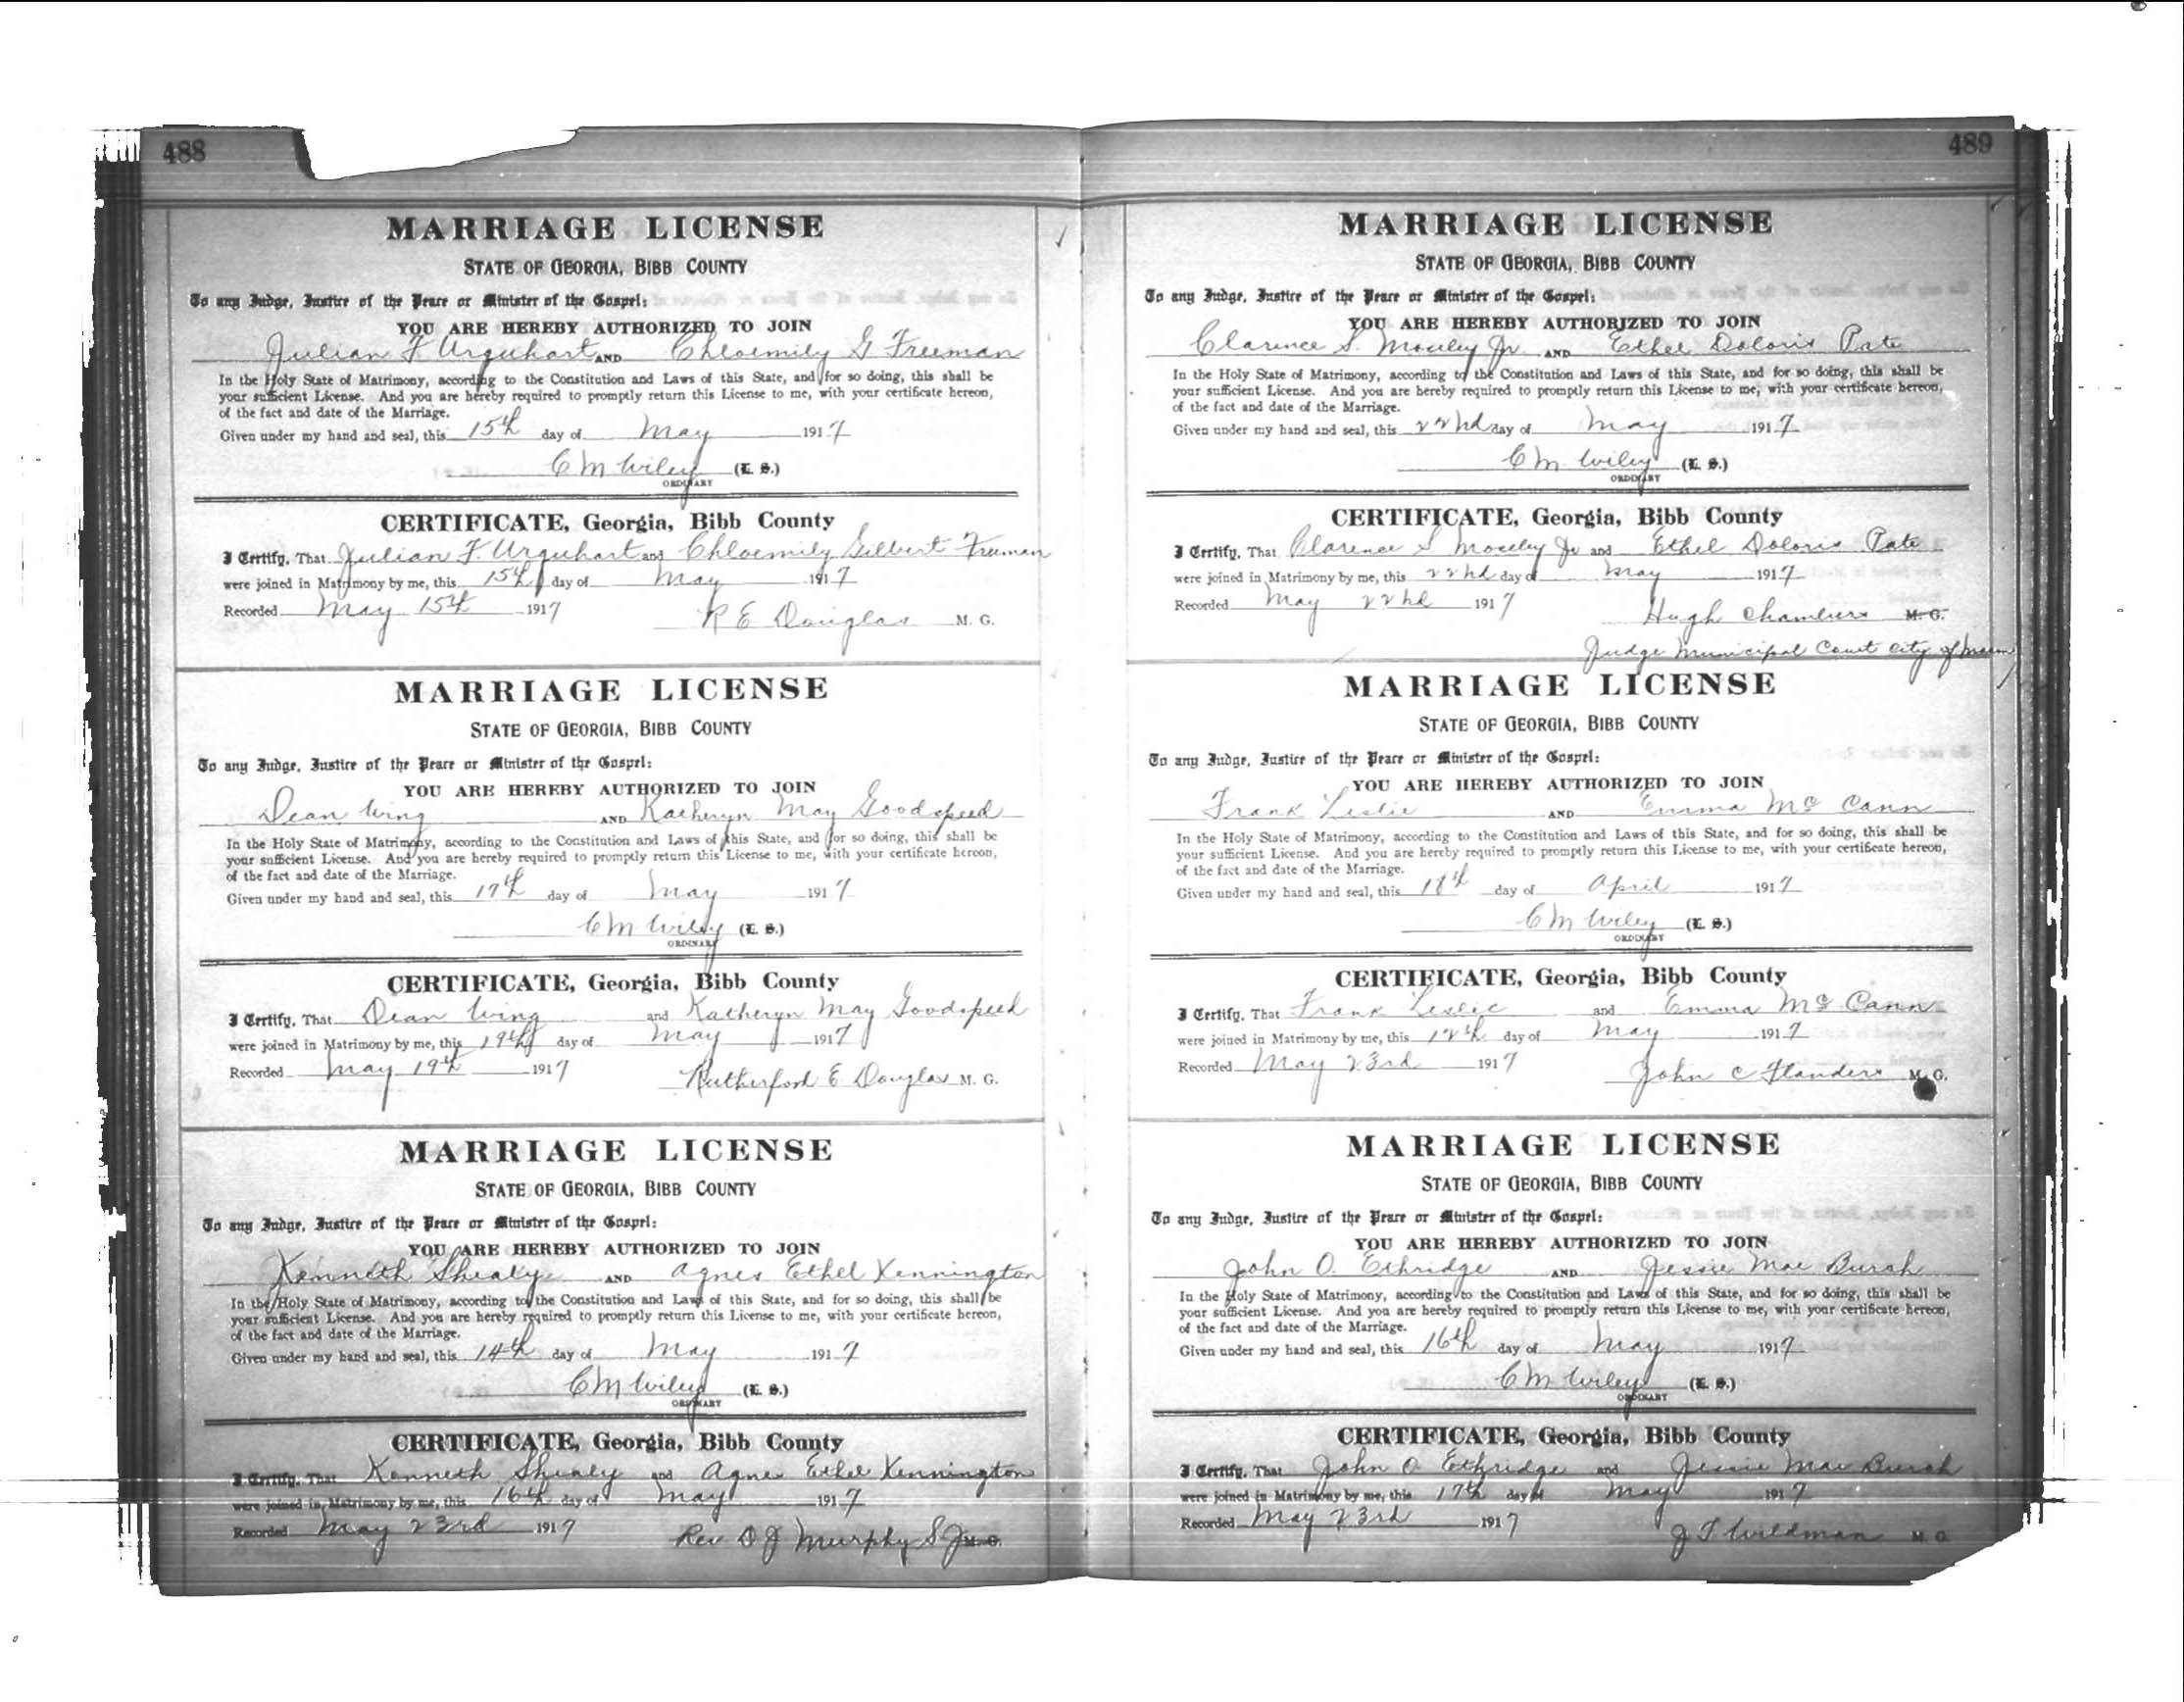 488
MARRIAGE LICENSE
STATE OF GEORGIA, BIBB COUNTY
To any Judge, Justice of the Peace or Minister of the Gospel:
YOU ARE HEREBY AUTHORIZED TO JOIN
Julian F. Urquhart AND Chloemily G Freeman
In the Holy State of Matrimony, according to the Constitution and Laws of this State, and for so doing, this shall be
your sufficient License. And you are hereby required to promptly return this License to me, with your certificate hereon,
of the fact and date of the Marriage.
Given under my hand and seal, this 15th day of May 1917
C M Wiley (L. S.)
ORDINARY
CERTIFICATE, Georgia, Bibb County
I Certify, That Julian F. Urquhart and Chloemily Gilbert Freeman
were joined in Matrimony by me, this 15th day of May 1917
Recorded May 15th 1917 R E Douglas M. G.
MARRIAGE LICENSE
STATE OF GEORGIA, BIBB COUNTY
To any Judge, Justice of the Peace or Minister of the Gospel:
YOU ARE HEREBY AUTHORIZED TO JOIN
Dean Wing AND Katheryn May Goodspeed
In the Holy State of Matrimony, according to the Constitution and Laws of this State, and for so doing, this shall be
your sufficient License. And you are hereby required to promptly return this License to me, with your certificate hereon,
of the fact and date of the Marriage.
Given under my hand and seal, this 17th day of May 1917
C M Wiley (L. S.)
ORDINARY
CERTIFICATE, Georgia, Bibb County
I Certify, That Dean Wing and Katheryn May Goodspeed
were joined in Matrimony by me, this 19th day of May 1917
Recorded May 19th 1917 Rutherford E Douglas M. G.
MARRIAGE LICENSE
STATE OF GEORGIA, BIBB COUNTY
To any Judge, Justice of the Peace or Minister of the Gospel:
YOU ARE HEREBY AUTHORIZED TO JOIN
Kenneth Shealy AND Agnes Ethel Kennington
In the Holy State of Matrimony, according to the Constitution and Laws of this State, and for so doing, this shall be
your sufficient License. And you are hereby required to promptly return this License to me, with your certificate hereon,
of the fact and date of the Marriage.
Given under my hand and seal, this 14th day of May 1917
C M Wiley (L. S.)
ORDINARY
CERTIFICATE, Georgia, Bibb County
I Certify, That Kenneth Shealy and Agnes Ethel Kennington
were joined in Matrimony by me, this 16th day of May 1917
Recorded May 23rd 1917 Rev O J Murphy S J M. G.
489
MARRIAGE LICENSE
STATE OF GEORGIA, BIBB COUNTY
To any Judge, Justice of the Peace or Minister of the Gospel:
YOU ARE HEREBY AUTHORIZED TO JOIN
Clarence S. Moseley Jr AND Ethel Doloris Pate
In the Holy State of Matrimony, according to the Constitution and Laws of this State, and for so doing, this shall be
your sufficient License. And you are hereby required to promptly return this License to me, with your certificate hereon,
of the fact and date of the Marriage.
Given under my hand and seal, this 22nd day of May 1917
C M Wiley (L. S.)
ORDINARY
CERTIFICATE, Georgia, Bibb County
I Certify, That Clarence S Moseley Jr and Ethel Doloris Pate
were joined in Matrimony by me, this 22nd day of May 1917
Recorded May 22nd 1917 Hugh Chambers M. G.
Judge Municipal Court City of Macon
MARRIAGE LICENSE
STATE OF GEORGIA, BIBB COUNTY
To any Judge, Justice of the Peace or Minister of the Gospel:
YOU ARE HEREBY AUTHORIZED TO JOIN
Frank Leslie AND Emma Mc Cann
In the Holy State of Matrimony, according to the Constitution and Laws of this State, and for so doing, this shall be
your sufficient License. And you are hereby required to promptly return this License to me, with your certificate hereon,
of the fact and date of the Marriage.
Given under my hand and seal, this 18th day of April 1917
C M Wiley (L. S.)
ORDINARY
CERTIFICATE, Georgia, Bibb County
I Certify, That Frank Leslie and Emma Mc Cann
were joined in Matrimony by me, this 12th day of May 1917
Recorded May 23rd 1917 John C Flanders M. G.
MARRIAGE LICENSE
STATE OF GEORGIA, BIBB COUNTY
To any Judge, Justice of the Peace or Minister of the Gospel:
YOU ARE HEREBY AUTHORIZED TO JOIN
John O. Ethridge AND Jessie Mae Burch
In the Holy State of Matrimony, according to the Constitution and Laws of this State, and for so doing, this shall be
your sufficient License. And you are hereby required to promptly return this License to me, with your certificate hereon,
of the fact and date of the Marriage.
Given under my hand and seal, this 16th day of May 1917
C M Wiley (L. S.)
ORDINARY
CERTIFICATE, Georgia, Bibb County
I Certify, That John O. Ethridge and Jessie Mae Burch
were joined in Matrimony by me, this 17th day of May 1917
Recorded May 23rd 1917 J T Wildman M. G.